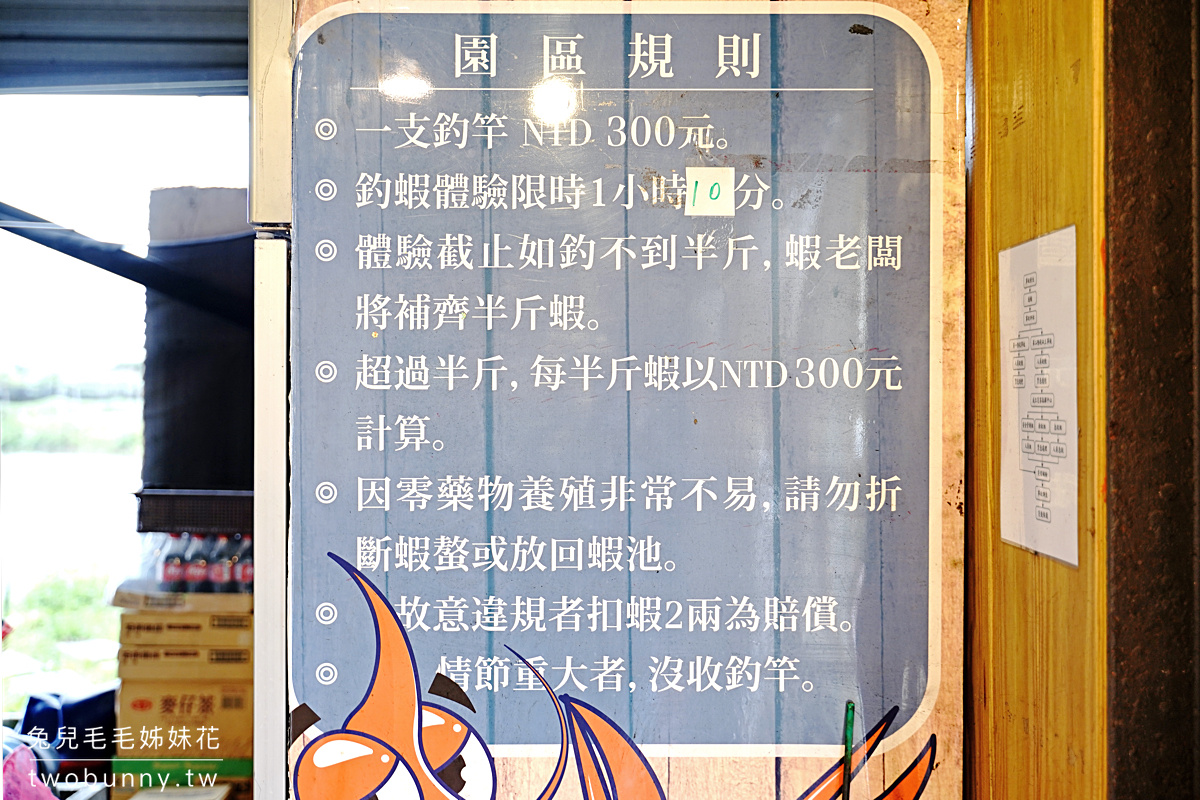 園區規則
◎ 一支釣竿 NTD 300元。
◎ 釣蝦體驗限時1小時10分。
◎ 體驗截止如釣不到半斤, 蝦老闆
將補齊半斤蝦。
◎ 超過半斤, 每半斤蝦以NTD 300元
計算。
◎ 因零藥物養殖非常不易, 請勿折
斷蝦螯或放回蝦池。
◎ 故意違規者扣蝦2兩為賠償。
◎ 情節重大者, 沒收釣竿。
麥仔茶
兔兒毛毛姊妹花
twobunny.tw